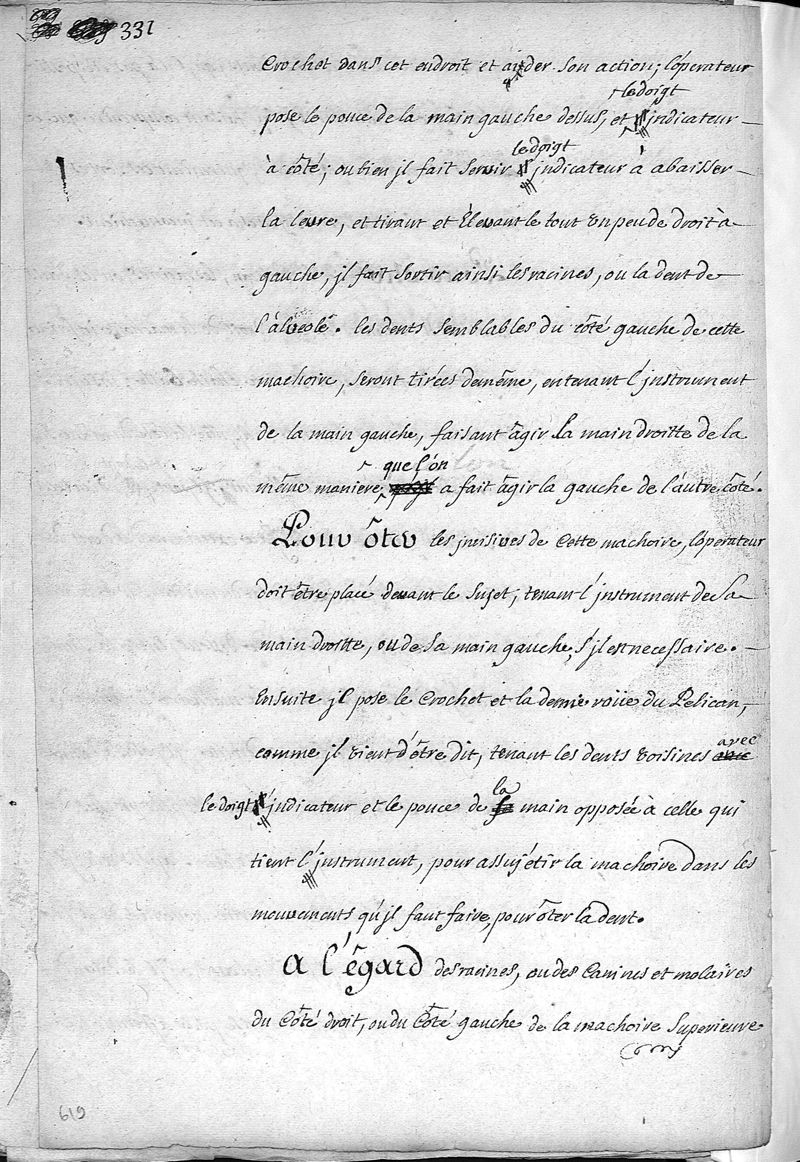 331
Crochet dans cet endroit et aider son action; l'óperateur
le doigt
pose le pouce de la main gauche dessus, et indicateur
le doigt
à côté; ou bien jl fait servir jndicateur à abaisser
la levre, et tirant et Élevant le tout un peu de droit à
gauche, jl fait sortir ainsi les racines, ou la dent de
l'álveole. les dents semblables du côté gauche de cette
machoire, seront tirées de même, en tenant l'jnstrument
de la main gauche, faisant âgir la main droitte de la
que l'on
même maniere a fait âgir la gauche de l'autre côté.
Pour ôter les jncisives de Cette machoire, l'óperateur
doit être placé devant le sujet, tenant l'jnstrument de sa
main droitte, ou de sa main gauche, s'jl est necessaire.
Ensuite jl pose le Crochet et la demie roüe du Pelican,
avec
comme jl vient d'être dit, tenant les dents voisines
la
le doigt jndicateur et le pouce de main opposée à celle qui
tient l'jnstrument, pour assujétir la machoire dans les
mouvements qu'jl faut faire, pour ôter la dent.
A l'égard des racines, ou des Canines et molaires
du Côté droit, ou du Côté gauche de la machoire Superieure
619